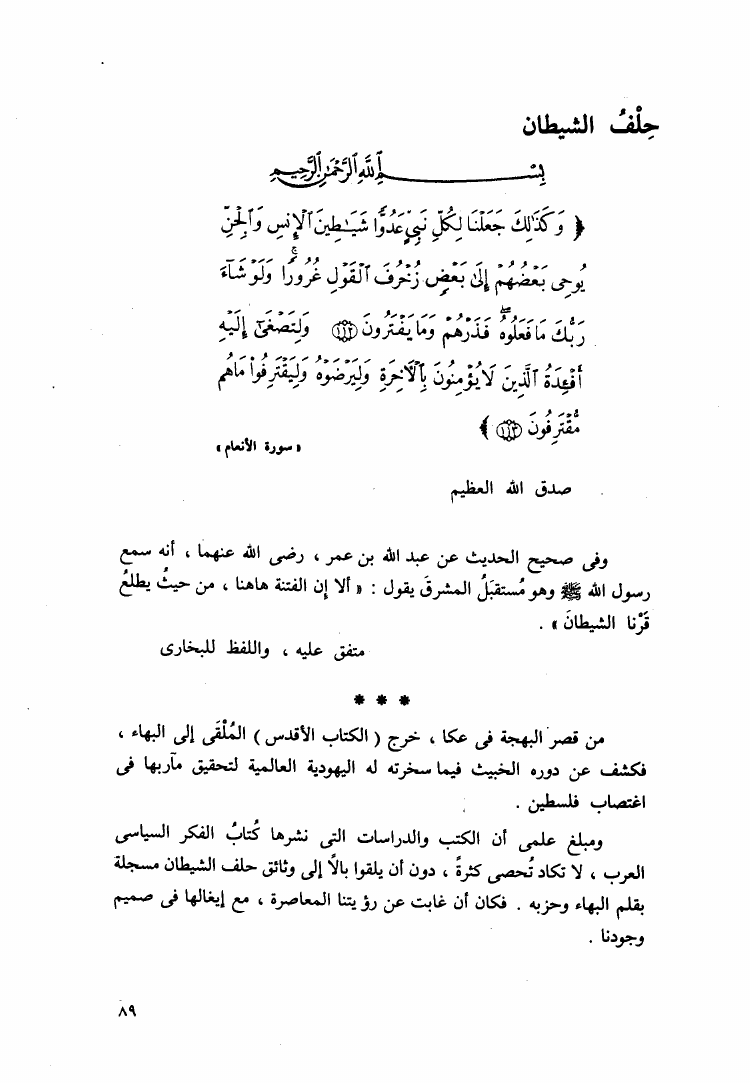 حِلْفُ الشيطان
بِسْمِ اللَّهِ الرَّحْمَٰنِ الرَّحِيمِ
﴿ وَكَذَٰلِكَ جَعَلْنَا لِكُلِّ نَبِيٍّ عَدُوًّا شَيَٰطِينَ ٱلْإِنسِ وَٱلْجِنِّ
يُوحِى بَعْضُهُمْ إِلَىٰ بَعْضٍ زُخْرُفَ ٱلْقَوْلِ غُرُورًا ۚ وَلَوْ شَآءَ
رَبُّكَ مَا فَعَلُوهُ ۖ فَذَرْهُمْ وَمَا يَفْتَرُونَ ﴿١١٢﴾ وَلِتَصْغَىٰٓ إِلَيْهِ
أَفْـِٔدَةُ ٱلَّذِينَ لَا يُؤْمِنُونَ بِٱلْءَاخِرَةِ وَلِيَرْضَوْهُ وَلِيَقْتَرِفُوا۟ مَا هُم
مُّقْتَرِفُونَ ﴿١١٣﴾ ﴾
« سورة الأنعام »
صدق الله العظيم
وفى صحيح الحديث عن عبد الله بن عمر ، رضى الله عنهما ، أنه سمع
رسول الله ﷺ وهو مُستقبَلُ المشرقَ يقول : « ألا إن الفتنة هاهنا ، من حيثُ يطلعُ
قَرْنا الشيطانَ » .
متفق عليه ، واللفظ للبخارى
* * *
من قصر البهجة فى عكا ، خرج ( الكتاب الأقدس ) المُلْقَى إلى البهاء ،
فكشف عن دوره الخبيث فيما سخرته له اليهودية العالمية لتحقيق مآربها فى
اغتصاب فلسطين .
ومبلغ علمى أن الكتب والدراسات التى نشرها كُتابُ الفكر السياسى
العرب ، لا تكاد تُحصى كثرةً ، دون أن يلقوا بالًا إلى وثائق حلف الشيطان مسجلة
بقلم البهاء وحزبه . فكان أن غابت عن رؤيتنا المعاصرة ، مع إيغالها فى صميم
وجودنا .
٨٩